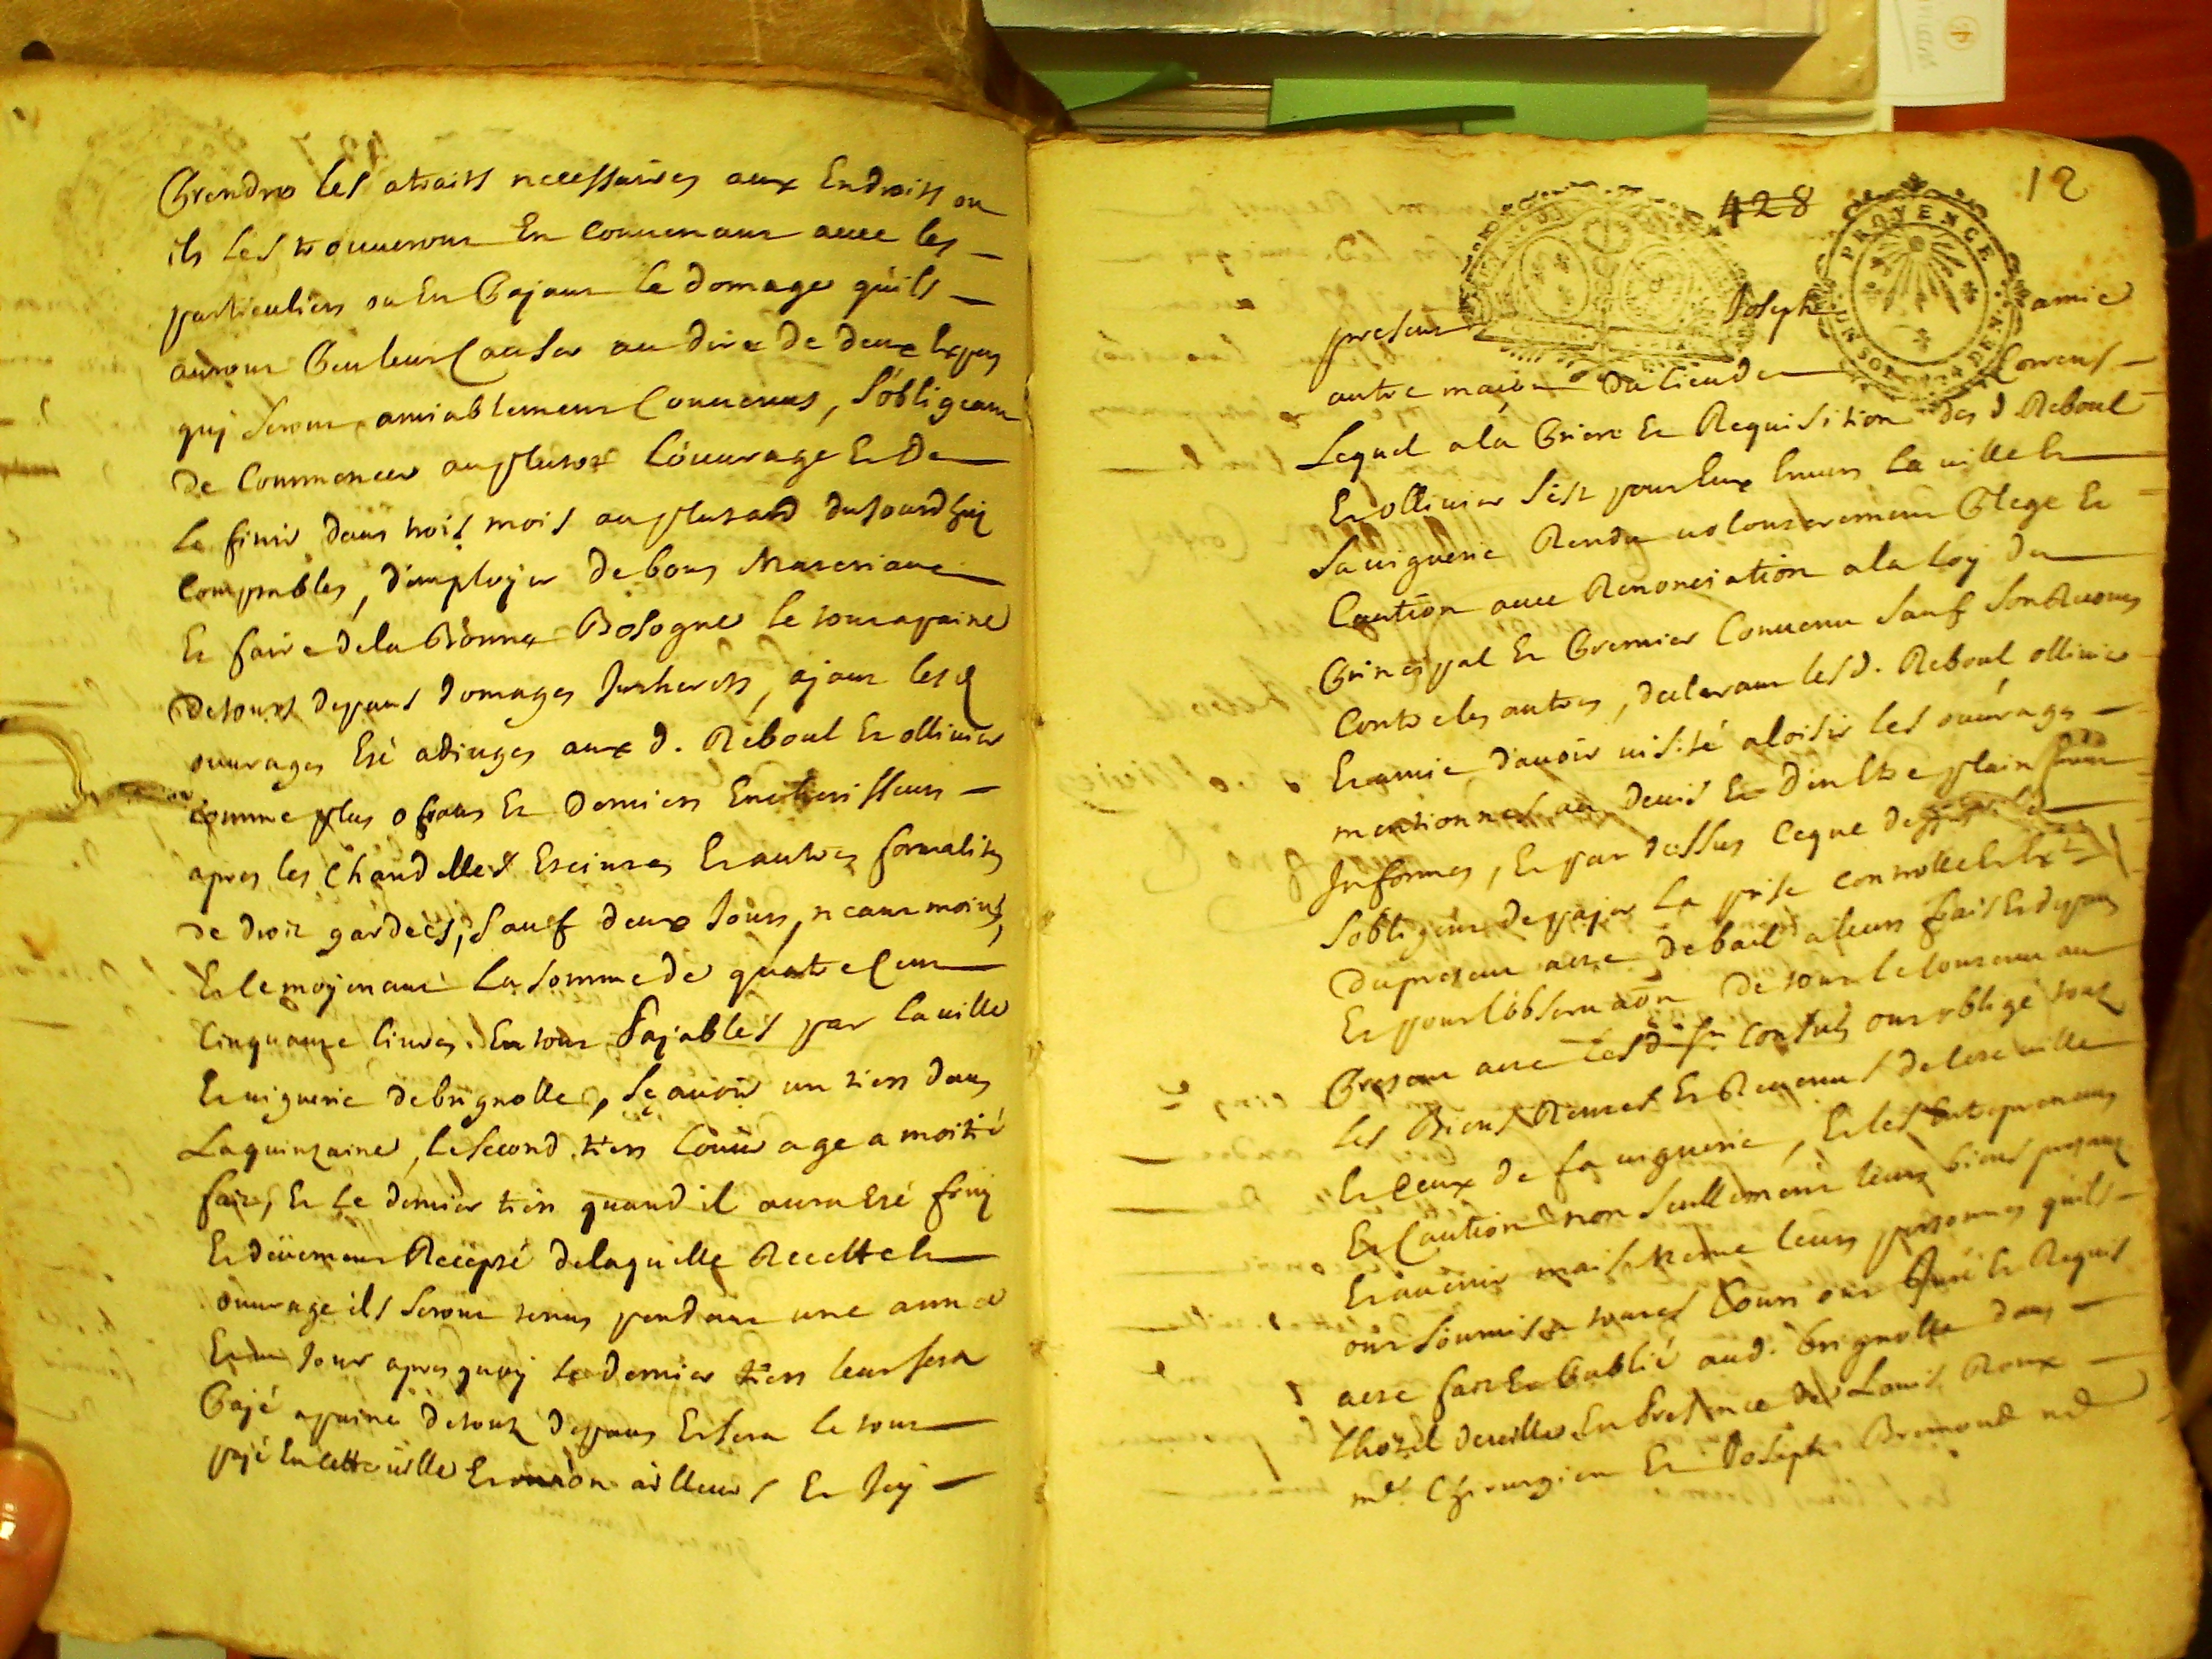 Prendre les atraits necessaires aux Endroits ou
ils les trouueront En conuenant auec les
particuliers ou En Payant le domage quils
auront Peu leur Causer au dire de deux Expers
quj seront amiablement Conuenus, S'obligeant
de Commencer au plutost L'ouurage Et De
le finir dans trois mois au plutard dujourdhuj
Comptables, d'employer de bons Materiaux
Et faire de la Bonne Besogne le tout a paine
De tous depans domages Interests, ajant lesd
ouurages Esté adiuges aux d. Reboul Et olliuier
comme plus ofrans Et derniers Encherisseurs
apres les Chandelles Esteintes Et autres formalites
de droit gardées, Sauf deux Jours, neantmoins,
Et le moyenant La somme de quatre Cent
Cinquante liures En tout Pajables par la uille
Et uiguerie de brignolle, Sçauoir un tiers dans
La quinzaine, le second tiers l'ouurage a moitié
fait, Et le dernier tiers quand il aura Esté finj
Et deüement Recepté de laquelle Recette Et
ouurage ils seront tenus pendant une année
Et un Jour apres quoy le dernier tiers leur sera
Pajé a paine de tous depans Et sera le tout
pajé En cette uille Et non ailleurs Et Icy
428
12
PROVENCE
UN SOL
DEN
present Joseph amic
autre maçon du lieu de Correns
Lequel a la Priere Et Requisition des d Reboul
Et olliuier s'est pour Eux Enuers la uille Et
Sa uiguerie Rendu uolontairement Plege Et
Caution auec Renonciation a la loy du
Principal Et Premier Conuenu Sauf Son Recours
Contre les autres, declarant lesd. Reboul olliuier
Et amic d'auoir uisité a loisir les ouurages
mentionnes au deuis Et d'en Estre plainement
Informes, Et par dessus ce que dessus
S'obligent de pajer La prise controlle Et Ext
du present acte de bail a leurs frais Et depans
Et pour l'obseruaon de tout le contenu au
Present acte lesd. srs Consuls ont obligé tous
Les Biens Rentes Et Reuenus de lad uille
Et Ceux de sa uiguerie, Et les Entrepreneurs
Et Caution non seullement leurs biens presans
Et auenir mais meme leurs personnes quils
ont soumis a toutes Cours ont Juré Et Requis
acte fait Et Publié aud. brignolle dans
l'hotel de uille En Presence de Louis Roux
me Chirurgien Et Joseph Bremond nd